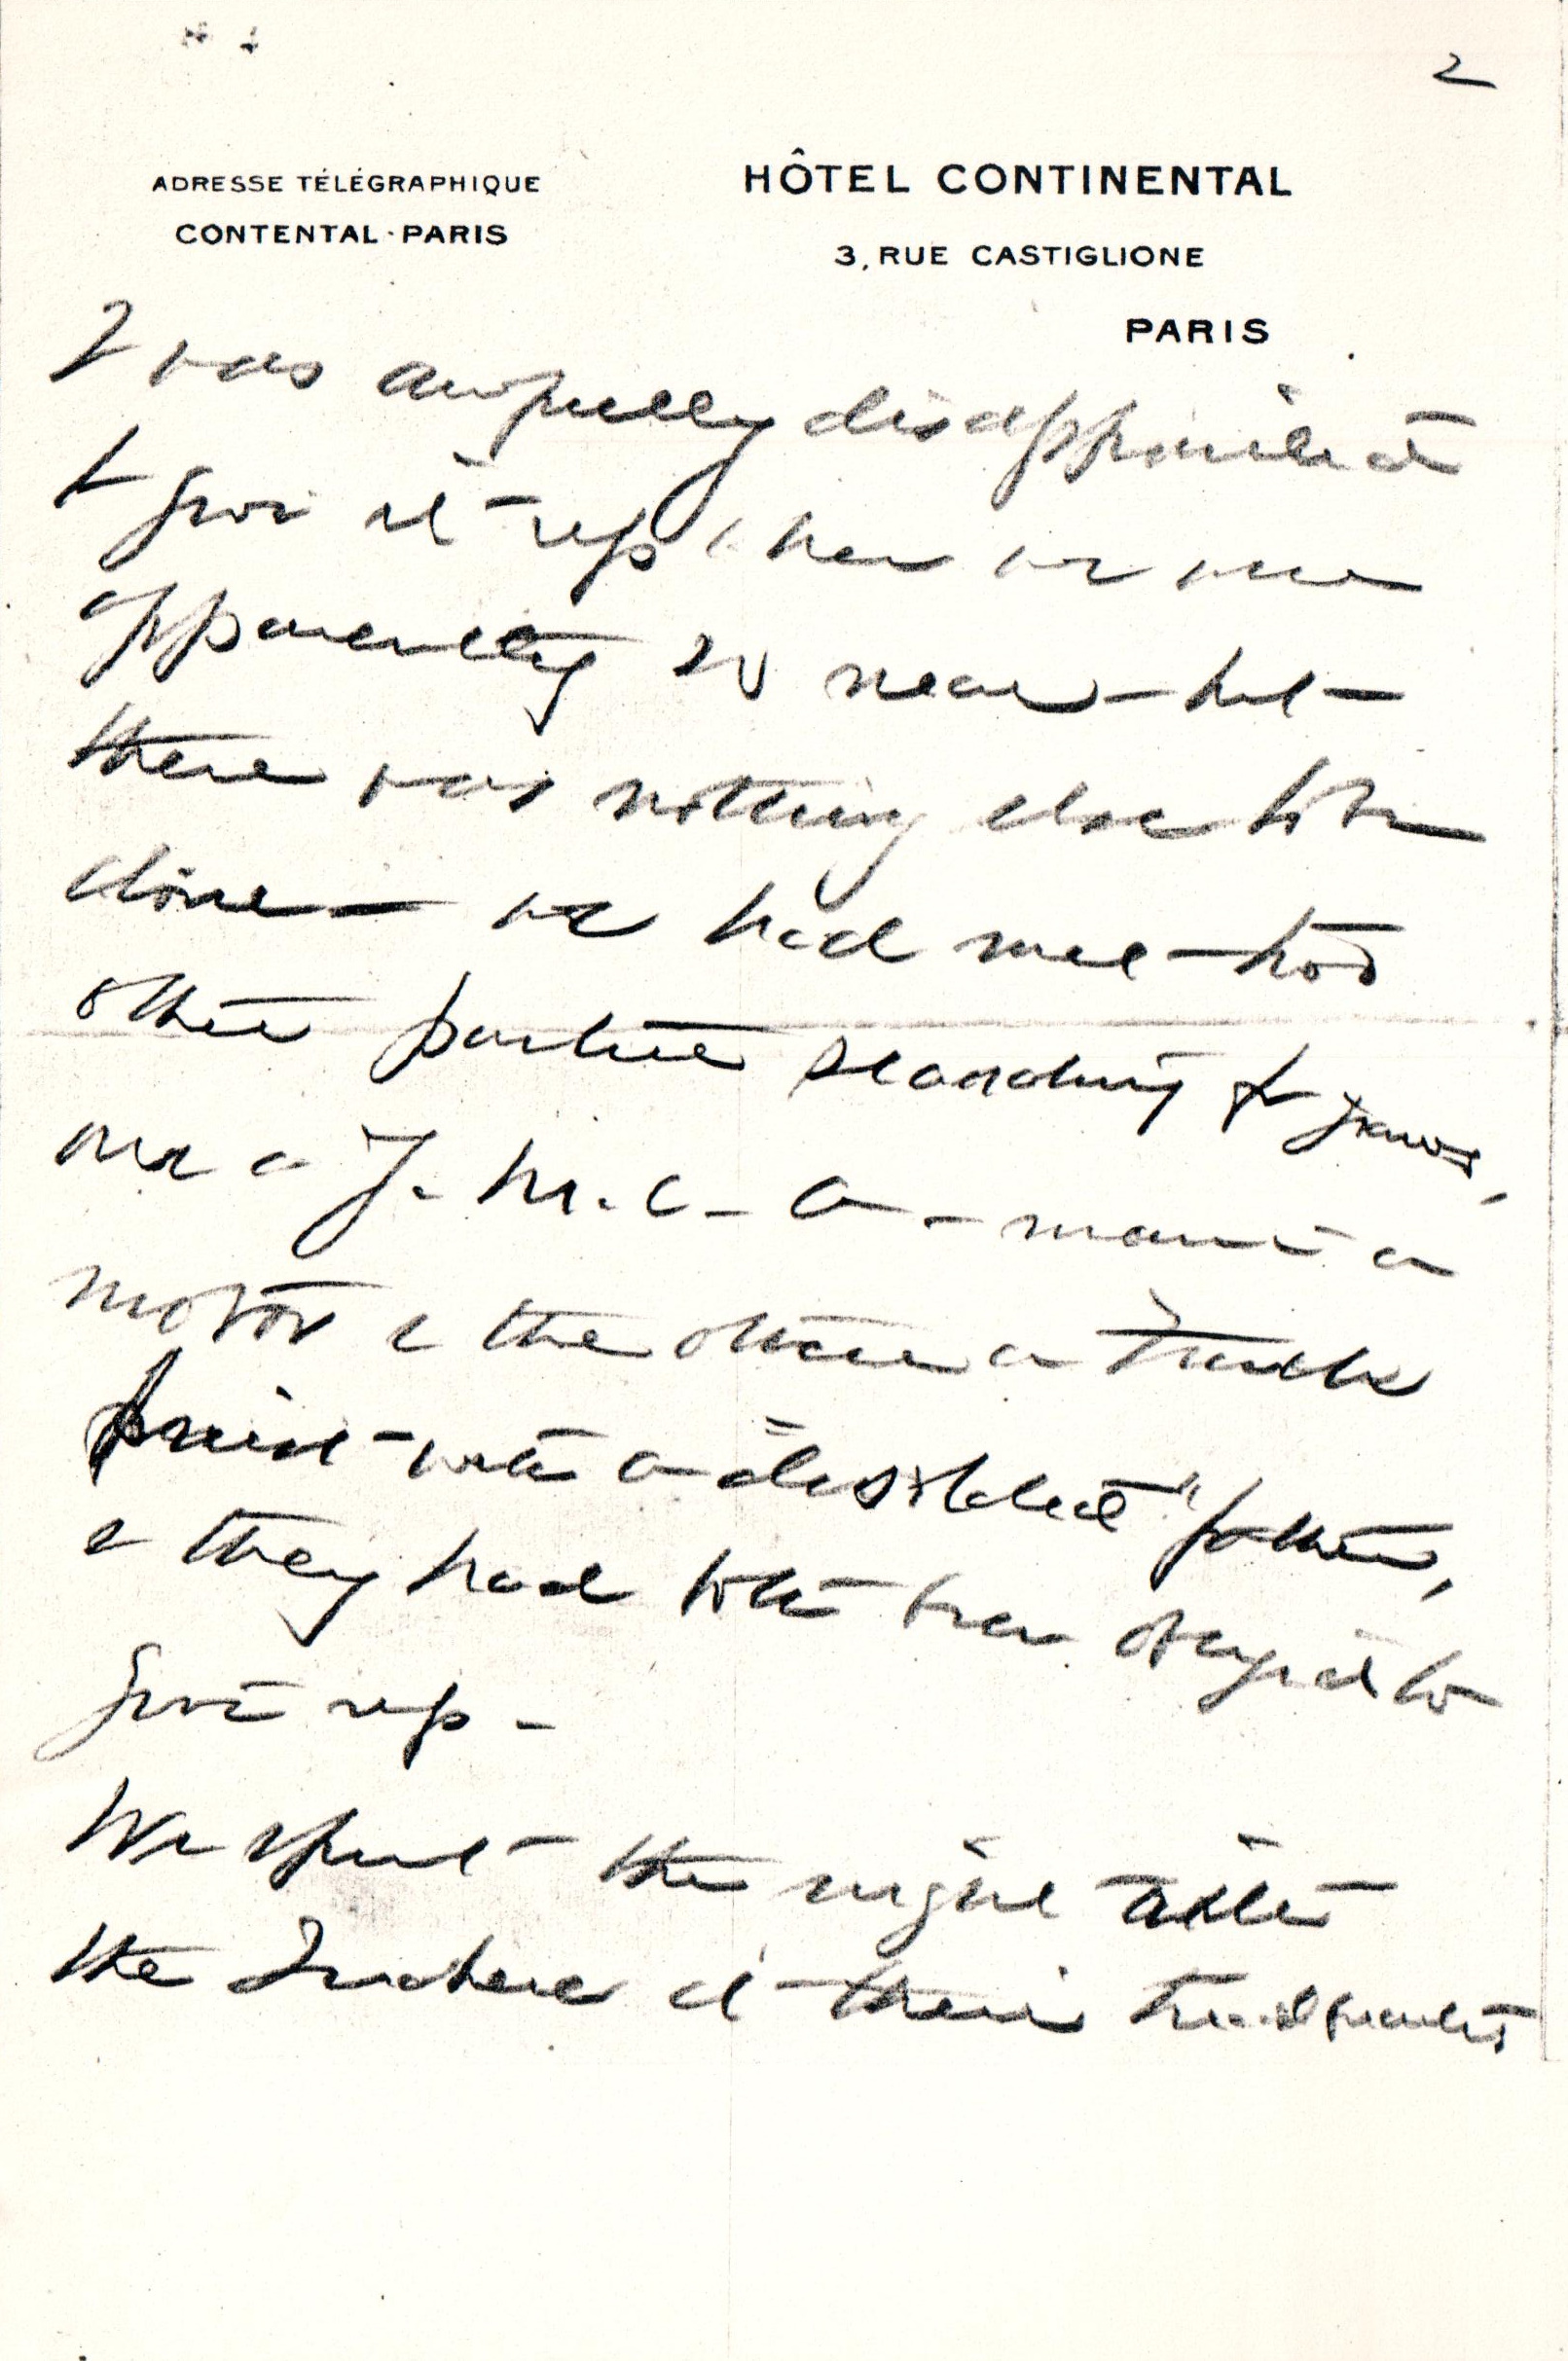 2
ADRESSE TÉLÉGRAPHIQUE
CONTENTAL·PARIS
HÔTEL CONTINENTAL
3, RUE CASTIGLIONE
PARIS
I was awfully disappointed
to give it up when we were
apparently so near – but
there was nothing else to be
done – we had met two
other parties searching for graves,
one a Y.M.C.A. man in a
motor & the other a French
priest with a disconsolate "father,
& they had both been obliged to
give up –
We spent the night after
the at their headquarters